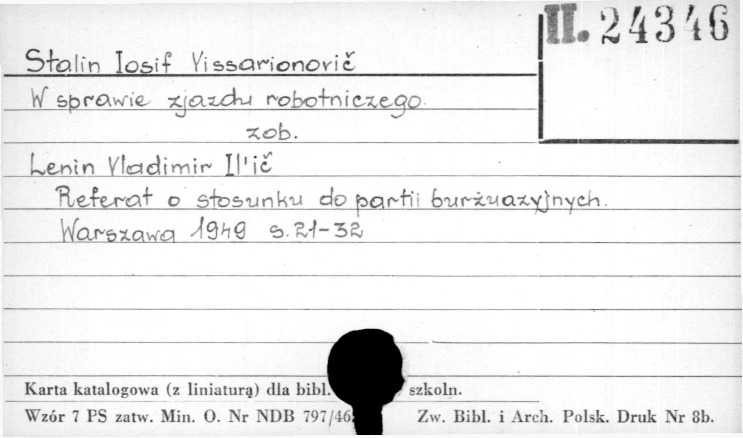 II. 24346
Stalin Iosif Vissarionovič
W sprawie zjazdu robotniczego.
zob.
Lenin Vladimir Il'ič
Referat o stosunku do partii burżuazyjnych.
Warszawa 1949 s. 21-32
Karta katalogowa (z liniaturą) dla bibl. szkoln.
Wzór 7 PS zatw. Min. O. Nr NDB 797/46 Zw. Bibl. i Arch. Polsk. Druk Nr 8b.